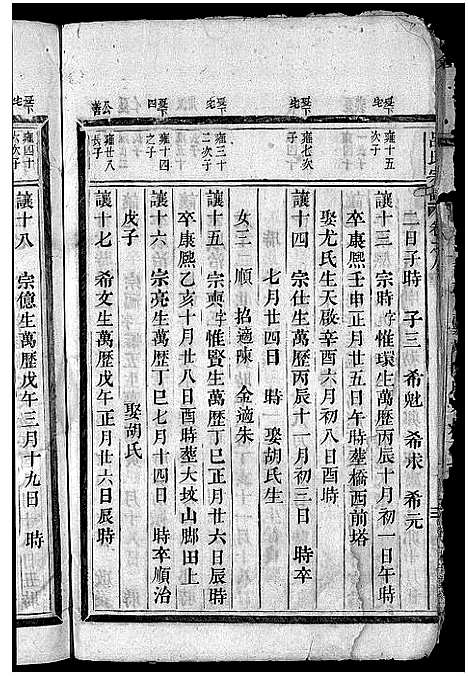 二日子時 子三 希魁 希求 希元
雍十五次子
讓十三 宗時字惟環生萬歷丙辰十月初一日午時
卒康熙壬申正月廿五日午時葬橋西前塔
娶尤氏生天啟辛酉六月初八日酉時
雍七次子
讓十四 宗仕生萬歷丙辰十一月初三日 時卒
七月廿四日 時 娶胡氏生
女三 二順 招適陳 金適朱
雍三十二次子
讓十五 宗奭字惟賢生萬歷丁巳正月廿六日辰時
卒康熙乙亥十月廿八日酉時葬大坟山脚田上
雍十四之子
讓十六 宗亮生萬歷丁巳七月十四日 時卒順治
戊子 娶胡氏
雍廿八長子
讓十七 希文生萬歷戊午正月廿六日辰時
雍四十六次子
讓十八 宗億生萬歷戊午三月十九日 時